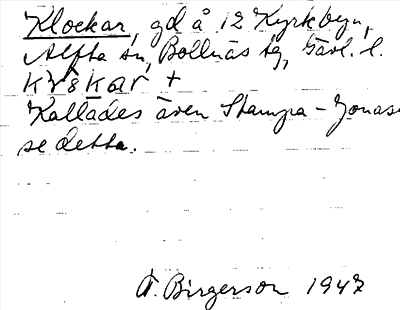 Klockar, gd å 12 Kyrkbyn,
Alfta sn, Bollnäs tg, Gävl. l.
+
Kallades även Stampa-Jonas
se detta.
A. Birgerson 1947